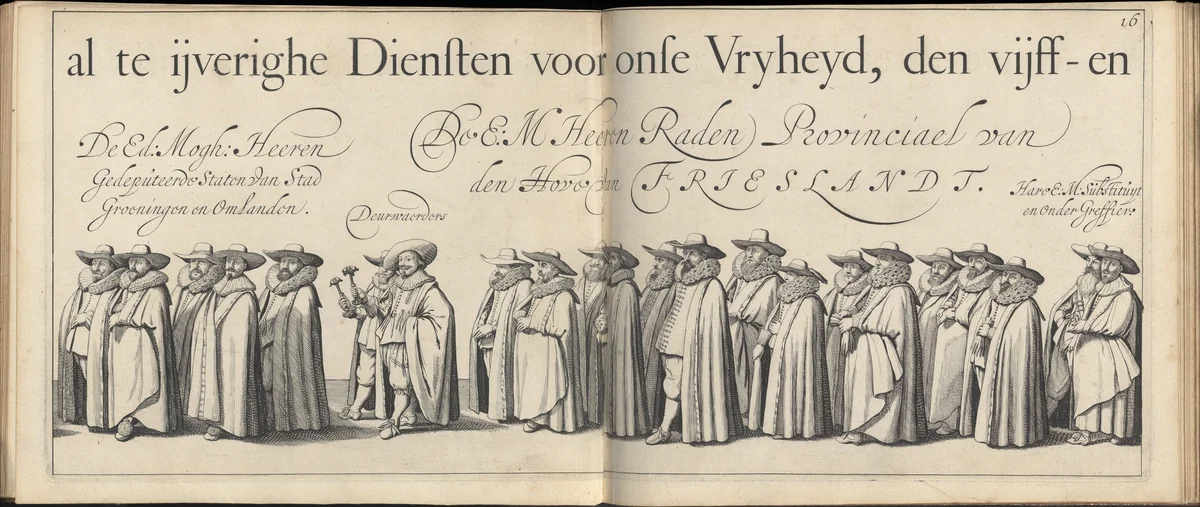 16
al te ijverighe Dienſten voor onſe Vryheyd, den vijff-en
De Ed: Mogh: Heeren
Gedeputeerde Staten van Stad
Groeningen en Omlanden.
Deurwaerders
De E: M Heeren Raden Provinciael van
den Hove van FRIESLANDT.
Hare E: M: Substituyt
en Onder Greffiers